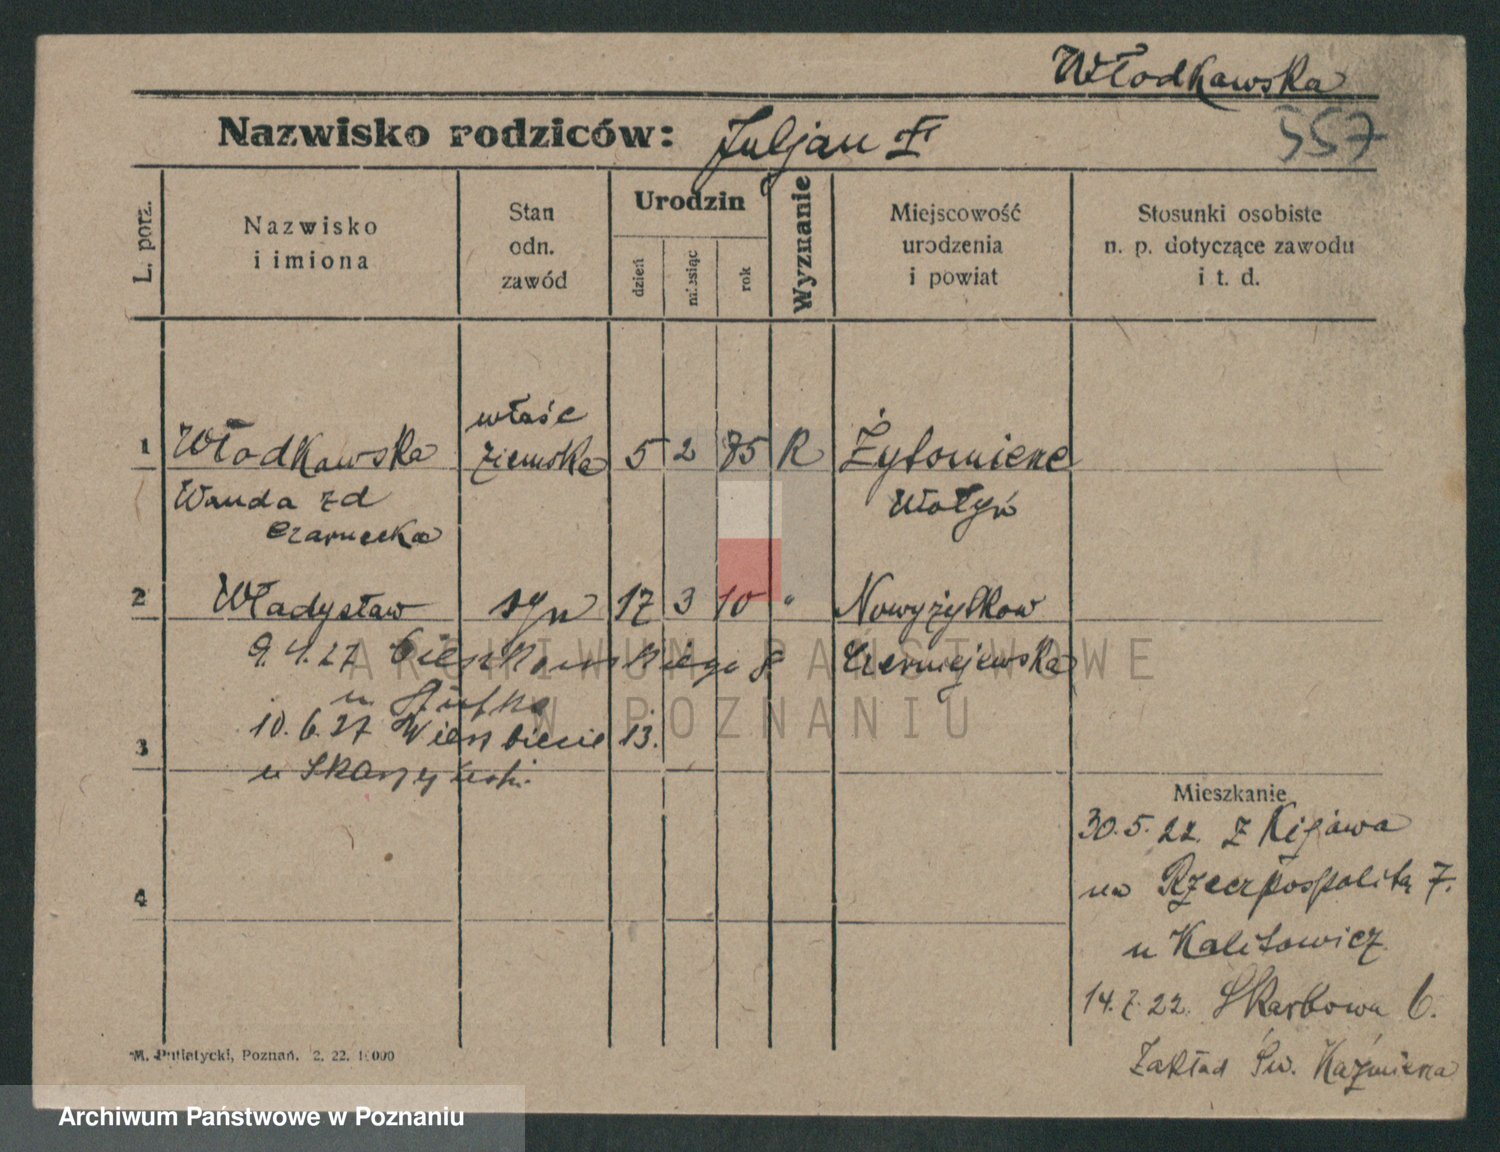 Włodkawska
Nazwisko rodziców: Juljan F
557
L. porz.
Nazwisko
i imiona
Stan
odn.
zawód
Urodzin
dzień
miesiąc
rok
Wyznanie
Miejscowość
urodzenia
i powiat
Stosunki osobiste
n. p. dotyczące zawodu
i t. d.
1 Włodkawska właśc ziemska 5 2 85 R Żytomierz
Wanda zd Wołyń
Czarnecka
2 Władysław syn 17 3 10 " Nowyżylkow
9.4.27 Cieszkowskiego 8 Czerniejewska
u
10.6.27 Wierzbięcie 13.
3
u Skarżyński.
4
Mieszkanie
30.5.22. z Kijowa
na Rzeczpospolitą 7.
u Kalitowicz
14.7.22. Skarbowa 6.
Zakład Św. Kaźmierza
M. Putiatycki, Poznań. 2. 22. 10000
ARCHIWUM PAŃSTWOWE
W POZNANIU
Archiwum Państwowe w Poznaniu